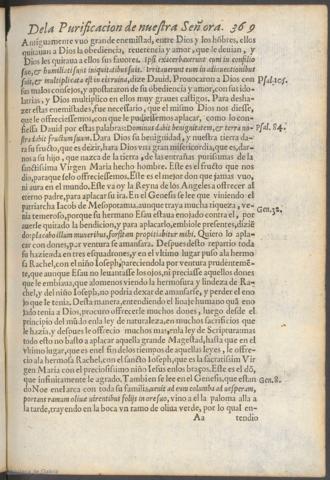 De la Purificacion de nuestra Señora. 369
Antiguamente vuo grande enemistad, entre Dios y los hõbres, ellos
quitauan a Dios la obediencia, reuerencia y amor, que le deuian, y
Dios les quitaua a ellos sus fauores. Ipsi exacerbauerunt eum in consilio
suo, & humiliati sunt in iniquitatibus suis. Irritauerunt eum in adinuentionibus
suis, & multiplicata est in eis ruina, dize Dauid. Prouocaron a Dios con
Psal. 105.
sus malos consejos, y apostataron de su obediencia y amor, con sus ido
latrias, y Dios multiplico en ellos muy graues castigos. Para desha-
zer estas enemistades, fue necessario, que el mismo Dios nos diesse,
que le offreciessemos, con que le pudiessemos aplacar, como lo con-
fiessa Dauid por estas palabras: Dominus dabit benignitatem, & terra no-
Psal. 84.
stra dabit fructum suum. Dara Dios su benignidad, y nuestra tierra da-
ra su fructo, que es dezir, hara Dios vna gran misericordia, que es, dar-
nos a su hijo, que nazca de la tierra, de las entrañas purissimas de la
sanctissima Virgen Maria hecho hombre. Este es el fructo que nos
dio, para que se lo offreciessemos. Este es el mejor don que jamas vuo,
ni aura en el mundo. Este va oy la Reyna de los Angeles a offrecer al
eterno padre, para aplacar su ira. En el Genesis se lee que viniendo el
patriarcha Iacob de Mesopotamia, aunque traya mucha riqueza, ve-
Gen. 32.
nia temeroso, porque su hermano Esau estaua enojado contra el, por
auerle quitado la bendicion, y para aplacarlo, embiole presentes, dizié
do: placabo illum muneribus, forsitam propitiabitur mihi. Quiero lo apla-
car con dones, por ventura se amansara. Despues desto repartio toda
su hazienda en tres esquadrones, y en el vltimo lugar puso ala hermo
sa Rachel, con el niño Ioseph, pareciendola por ventura prudentemẽ-
te, que aunque Esau no leuantasse los ojos, ni preciasse aquellos dones
que le embiaua, alomenos viendo la hermosura y lindeza de Ra-
chel, y del niño Ioseph, no podria dexar de amansarse, y perder el eno
jo que le tenia. Desta manera, entendiendo el linaje humano quã eno
jado tenia a Dios, procuro offrecerle muchos dones, luego desde el
principio del mũdo en la ley de naturaleza, en muchos sacrificios que
le hazia, y despues le offrecio muchos mas, en la ley de Scriptura: mas
todo esto no basto a aplacar aquella grande Magestad, hasta que en el
vltimo lugar, que es enel fin delos tiempos de aquellas leyes, le offre-
cio ala hermosa Rachel, con el sancto Ioseph, que es la sacratissima Vir
gen Maria con el preciosissimo niño Iesus enlos braços. Este es el dõ,
que infinitamente le agrado. Tambien se lee en el Genesis, que estan
Gen. 8.
do Noe enel arca con toda su familia, venit ad eum columba ad vesperam,
portans ramum oliuæ virentibus folijs in ore suo, vino a el la paloma alla a
la tarde, trayendo en la boca vn ramo de oliua verde, por lo qual en-
Aa tendio